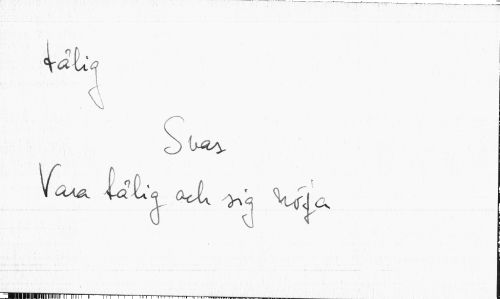 tålig
Svas
Vara tålig och sig nöja